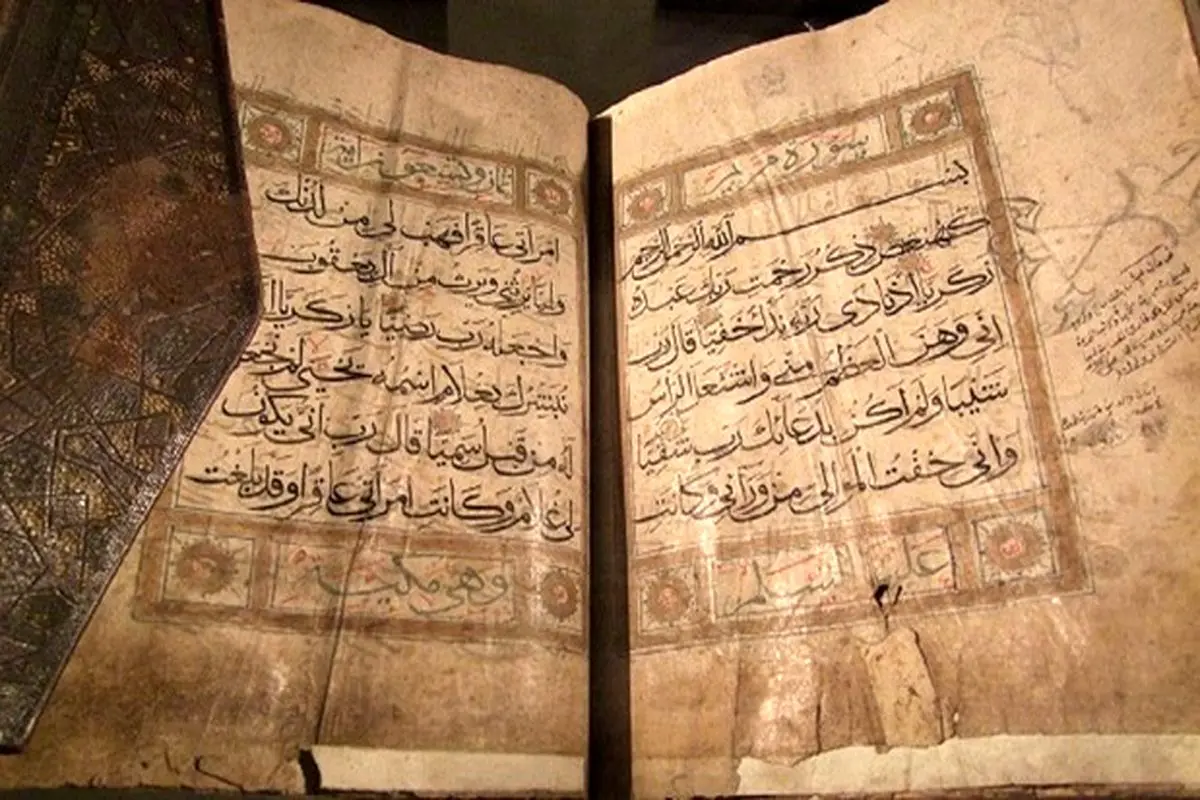 سورة مريم
بسم الله الرحمن الرحيم
كهيعص ذكر رحمت ربك عبده
زكريا إذ نادى ربه نداء خفيا قال رب
اني وهن العظم مني واشتعل الراس
شيبا ولم اكن بدعائك رب شقيا
واني خفت الموالي من ورائي وكانت
عليها السلم
وتسعون اية
امراتي عاقرا فهب لي من لدنك
وليا يرثني ويرث من ال يعقوب
واجعله رب رضيا يا زكريا انا
نبشرك بغلام اسمه يحيى لم نجعل
له من قبل سميا قال رب انى يكون
لي غلام وكانت امراتي عاقرا وقد بلغت
وهي مكية